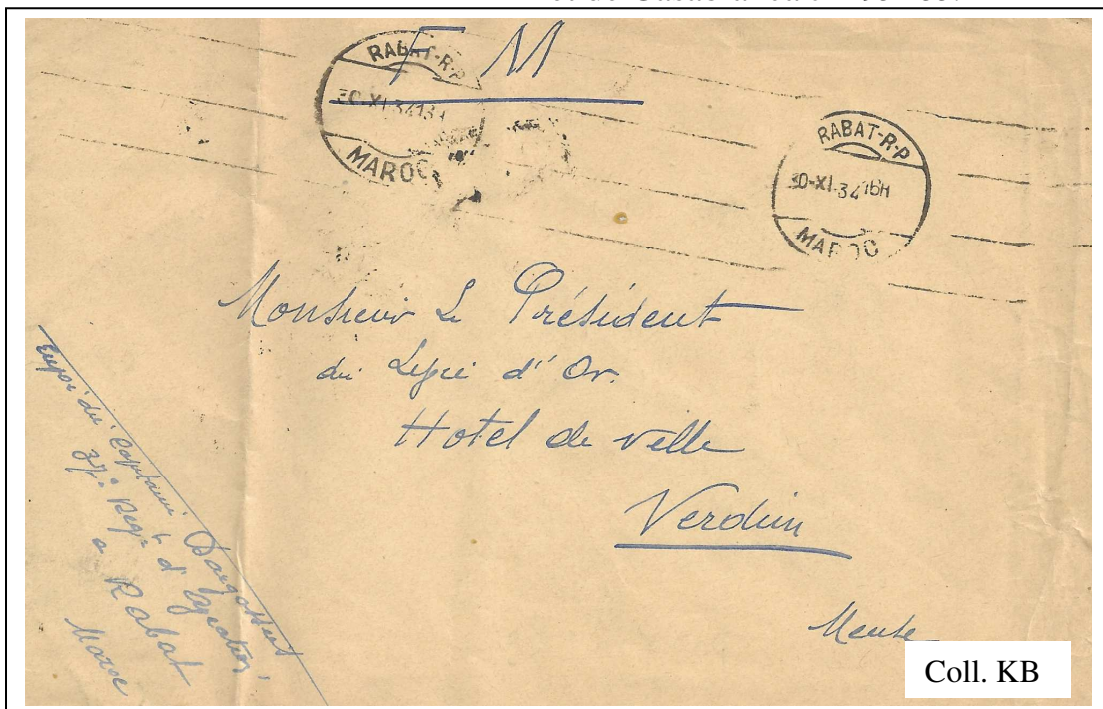 F M
RABAT-R.P
30-XI 34 13H
MAROC
RABAT-R.P
30-XI-34 16H
MAROC
Monsieur Le Président
du d'Or.
Hotel de ville
Verdun
Meuse
Capitaine
37e Regt d'
a Rabat
Maroc
Coll. KB